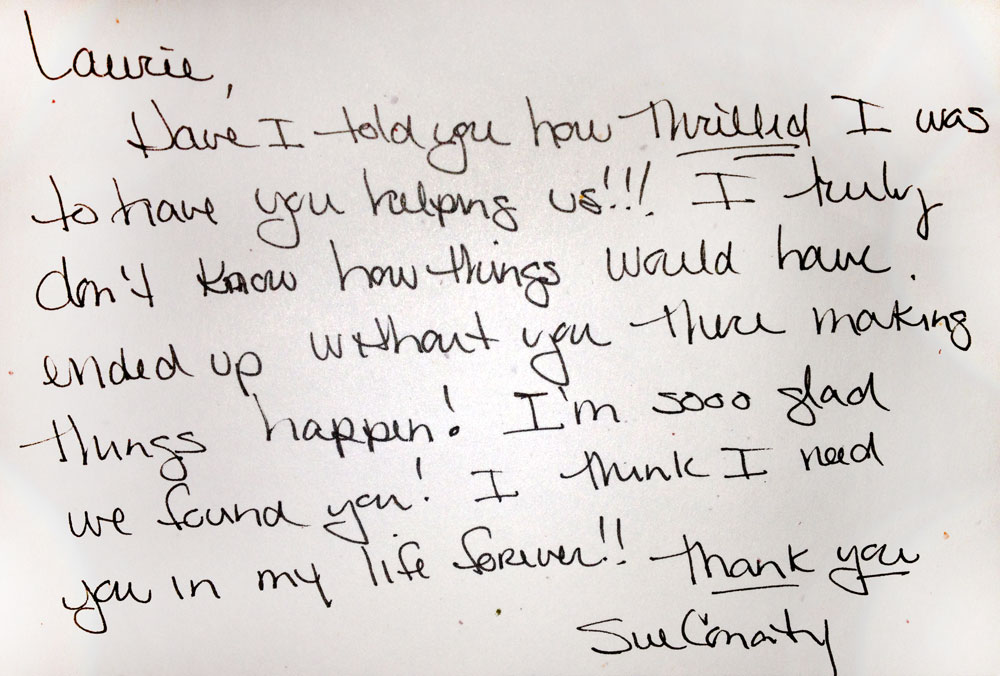 Laurie,
Have I told you how thrilled I was
to have you helping us!!! I truly
don't know how things would have.
ended up without you there making
things happen! I'm sooo glad
we found you! I think I need
you in my life forever!! Thank you
Sue